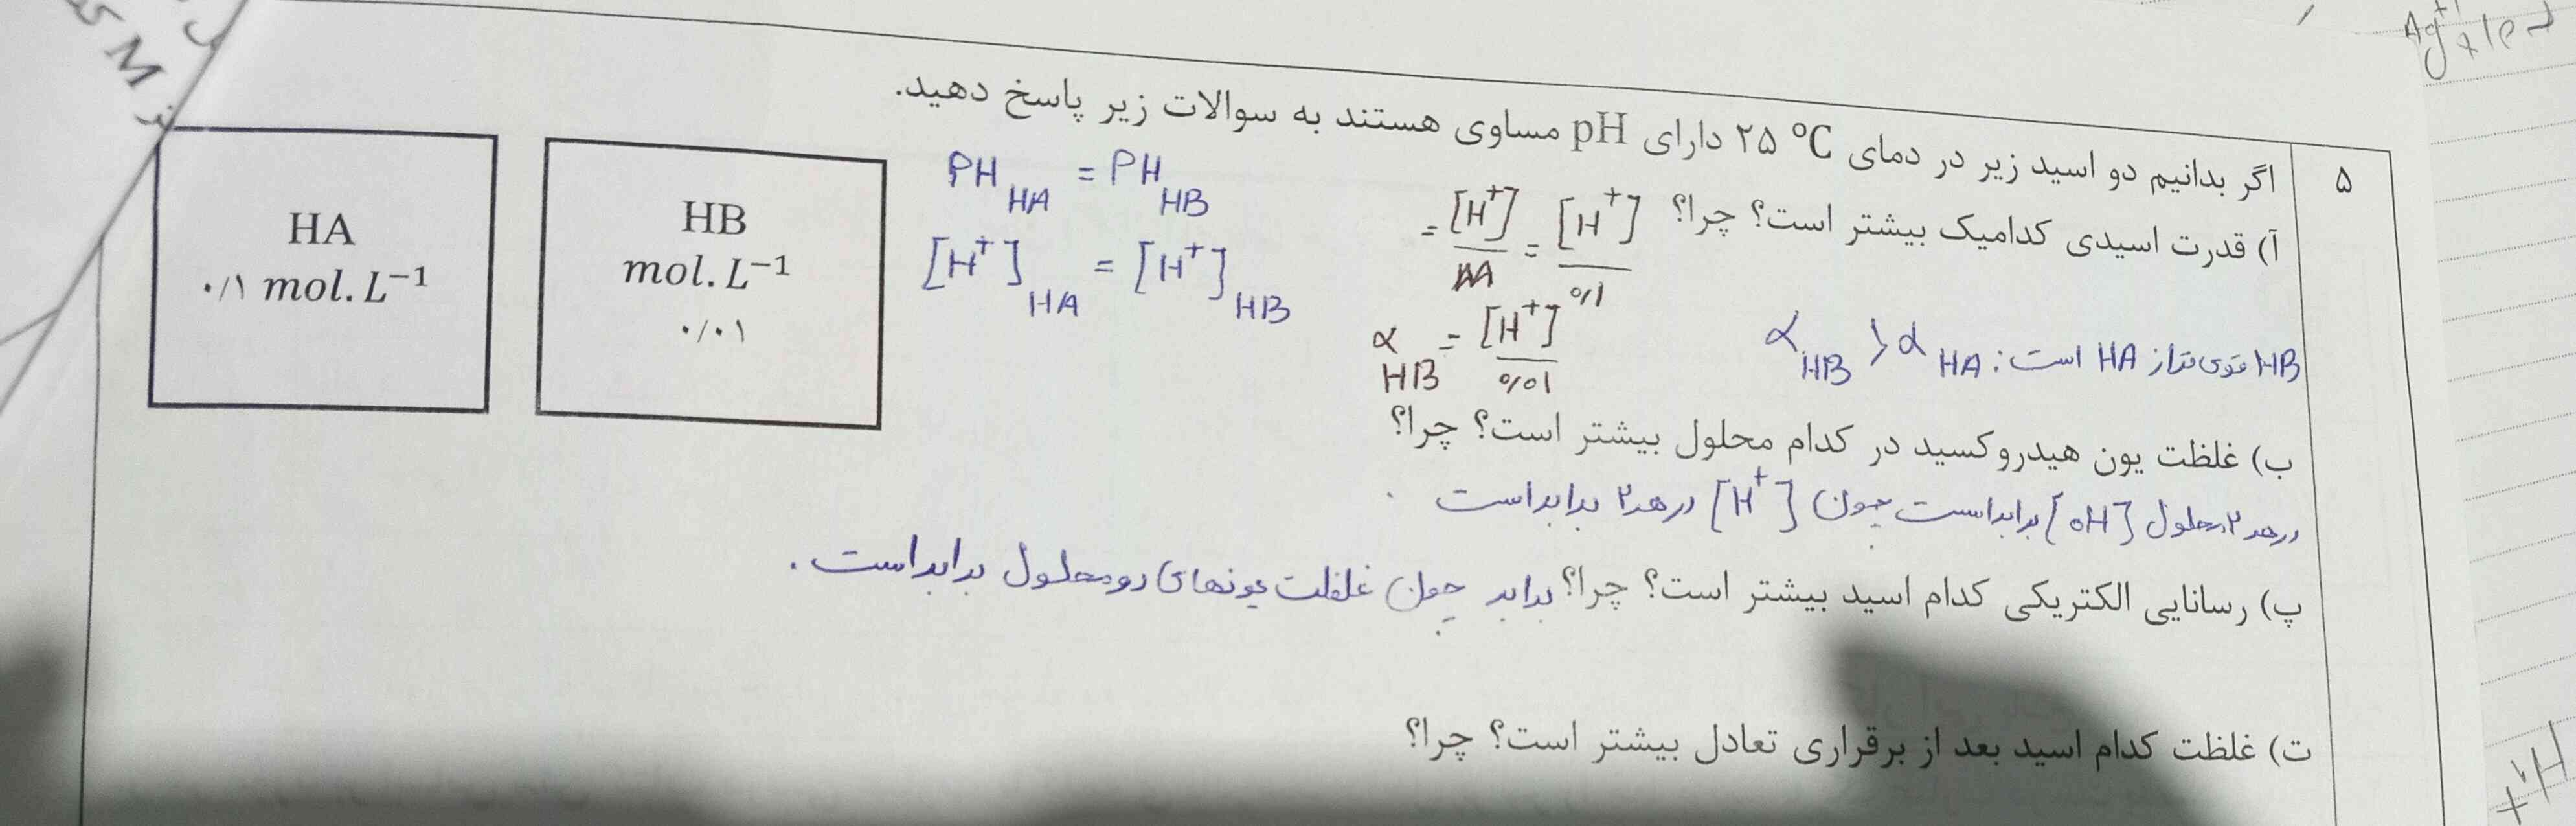 Ag⁺
۵
اگر بدانیم دو اسید زیر در دمای ۲۵ °C دارای pH مساوی هستند به سوالات زیر پاسخ دهید.
آ) قدرت اسیدی کدامیک بیشتر است؟ چرا؟
= [H⁺] / M = [H⁺] / ۰/۱
PH HA = PH HB
[H⁺] HA = [H⁺] HB
HA
۰/۱ mol.L⁻¹
HB
mol.L⁻¹
۰/۰۱
HB قوی تر از HA است : α HB > α HA
α HB = [H⁺] / ۰/۰۱
ب) غلظت یون هیدروکسید در کدام محلول بیشتر است؟ چرا؟
در هر ۲ محلول [OH] برابر است چون [H⁺] در هر ۲ برابر است .
پ) رسانایی الکتریکی کدام اسید بیشتر است؟ چرا؟ برابر چون غلظت یونهای دو محلول برابر است .
ت) غلظت کدام اسید بعد از برقراری تعادل بیشتر است؟ چرا؟